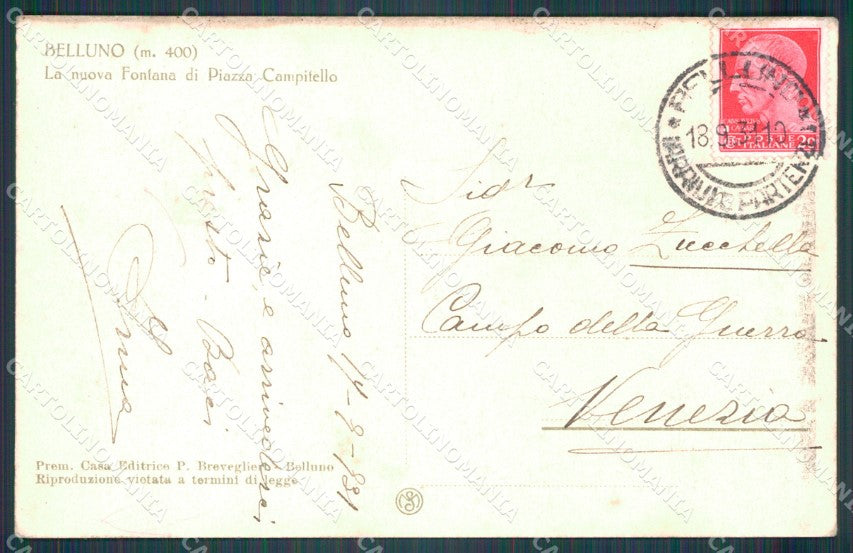 BELLUNO (m. 400)
La nuova Fontana di Piazza Campitello
BELLUNO
18.9.31.10
ARRIVI E PARTENZE
POSTE
ITALIANE
20
Belluno 17-9-931
Grazie, e arrivederci
presto - Baci
Sigr
Giacomo Zucchella
Campo della Guerra
Venezia
Prem. Casa Editrice P. Breveglieri - Belluno
Riproduzione vietata a termini di legge
CARTOLINOMANIA